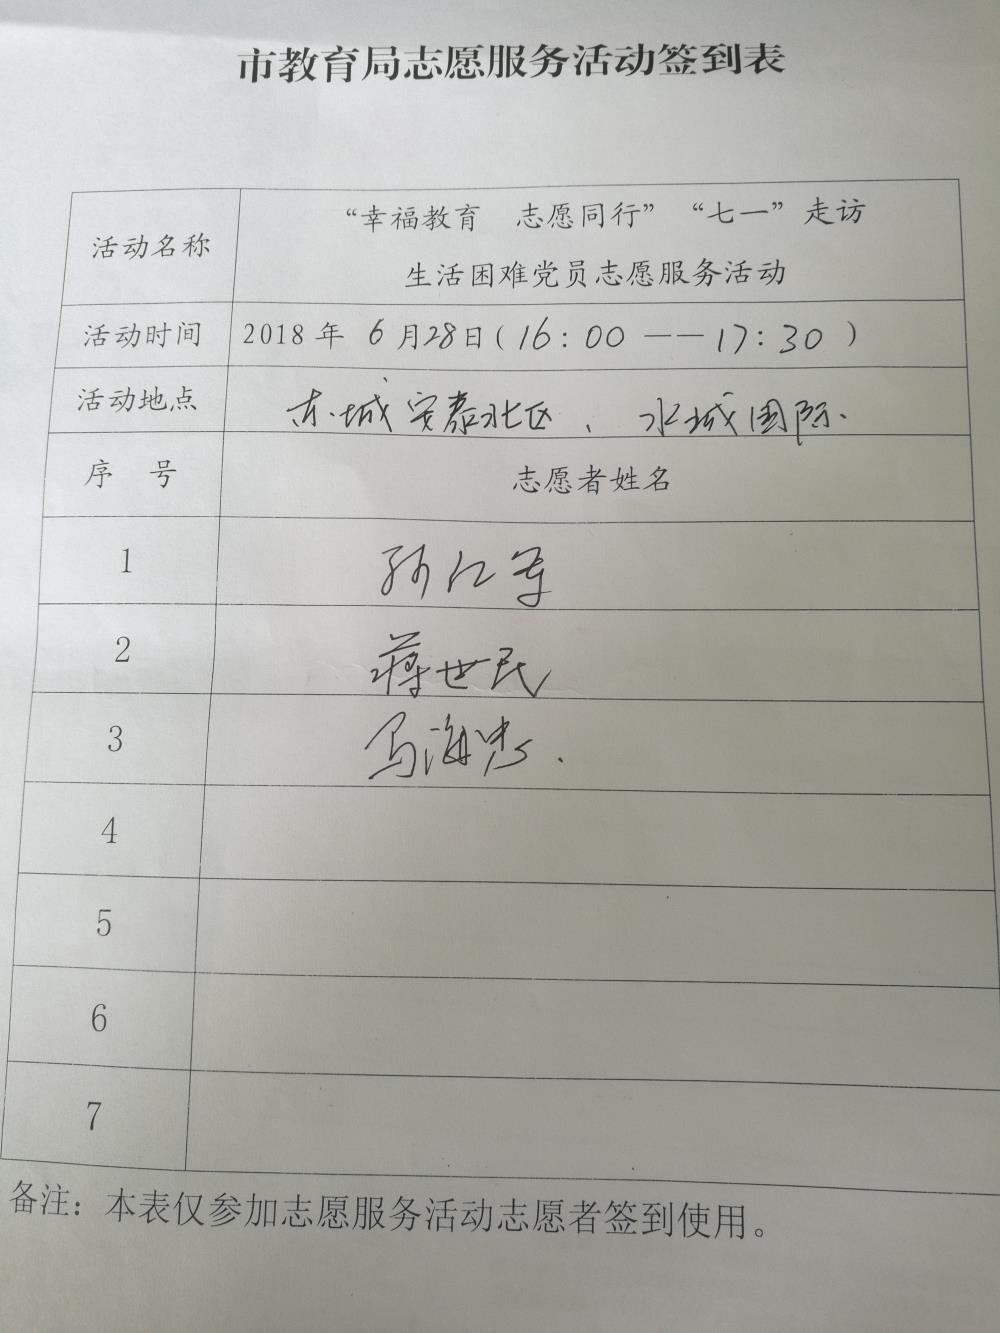 市教育局志愿服务活动签到表
活动名称
“幸福教育 志愿同行”“七一”走访
生活困难党员志愿服务活动
活动时间
2018 年 6 月 28 日(16:00 ——17:30)
活动地点
东城安泰北区、水城国际.
序 号
志愿者姓名
1
孙江
2
蒋世民
3
马海忠.
4
5
6
7
备注：本表仅参加志愿服务活动志愿者签到使用。